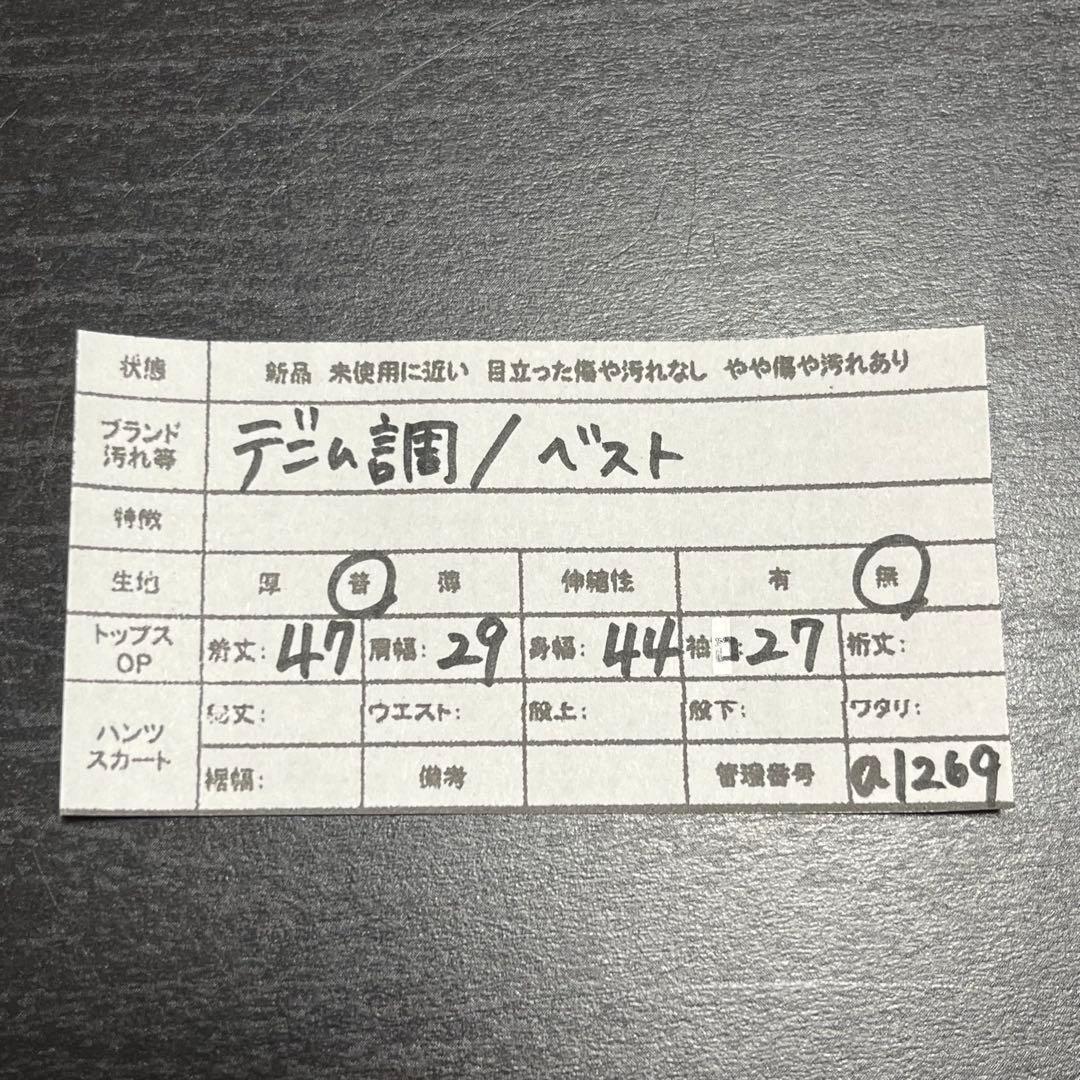 状態 新品 未使用に近い 目立った傷や汚れなし やや傷や汚れあり
ブランド
汚れ等 デニム調/ベスト
特徴
生地 厚 普 薄 伸縮性 有 無
トップス
OP 着丈: 47 肩幅: 29 身幅: 44 袖 27 裄丈:
パンツ
スカート 総丈: ウエスト: 股上: 股下: ワタリ:
裾幅: 備考 管理番号 a1269